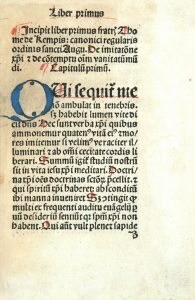 Liber primus
Incipit liber primus fratris Tho
me de Kempis: canonici regularis
ordinis sancti Augu. De imitatiõe
xp̄i et de cõtemptu om̄i vanitatũ mũ
di. Capitulũ primũ.
Qui sequit̃ me
nõ ambulat in tenebris.
sȝ habebit lumen vite di
cit dñs. Hec sunt verba xp̄i quibus
ammonemur quatenꝰ vitã eiꝰ et mo
res imitemur si velimꝰ veraciter il
luminari et ab omni cecitate cordis li
berari. Summũ igit̃ studiũ nostrũ
sit in vita iesu xp̄i meditari. Doctri
na xp̄i oẽs doctrinas sctõꝝ p̄cellit: et
qui spiritũ xp̄i haberet absconditũ
ibi manna inveniret. Sȝ cõtingit ꝙ
multi ex frequenti auditu euãgelij
uũ desideriũ sentiũt: qꝛ sp̄m xp̄i non
habent. Qui aũt vult plene et sapide